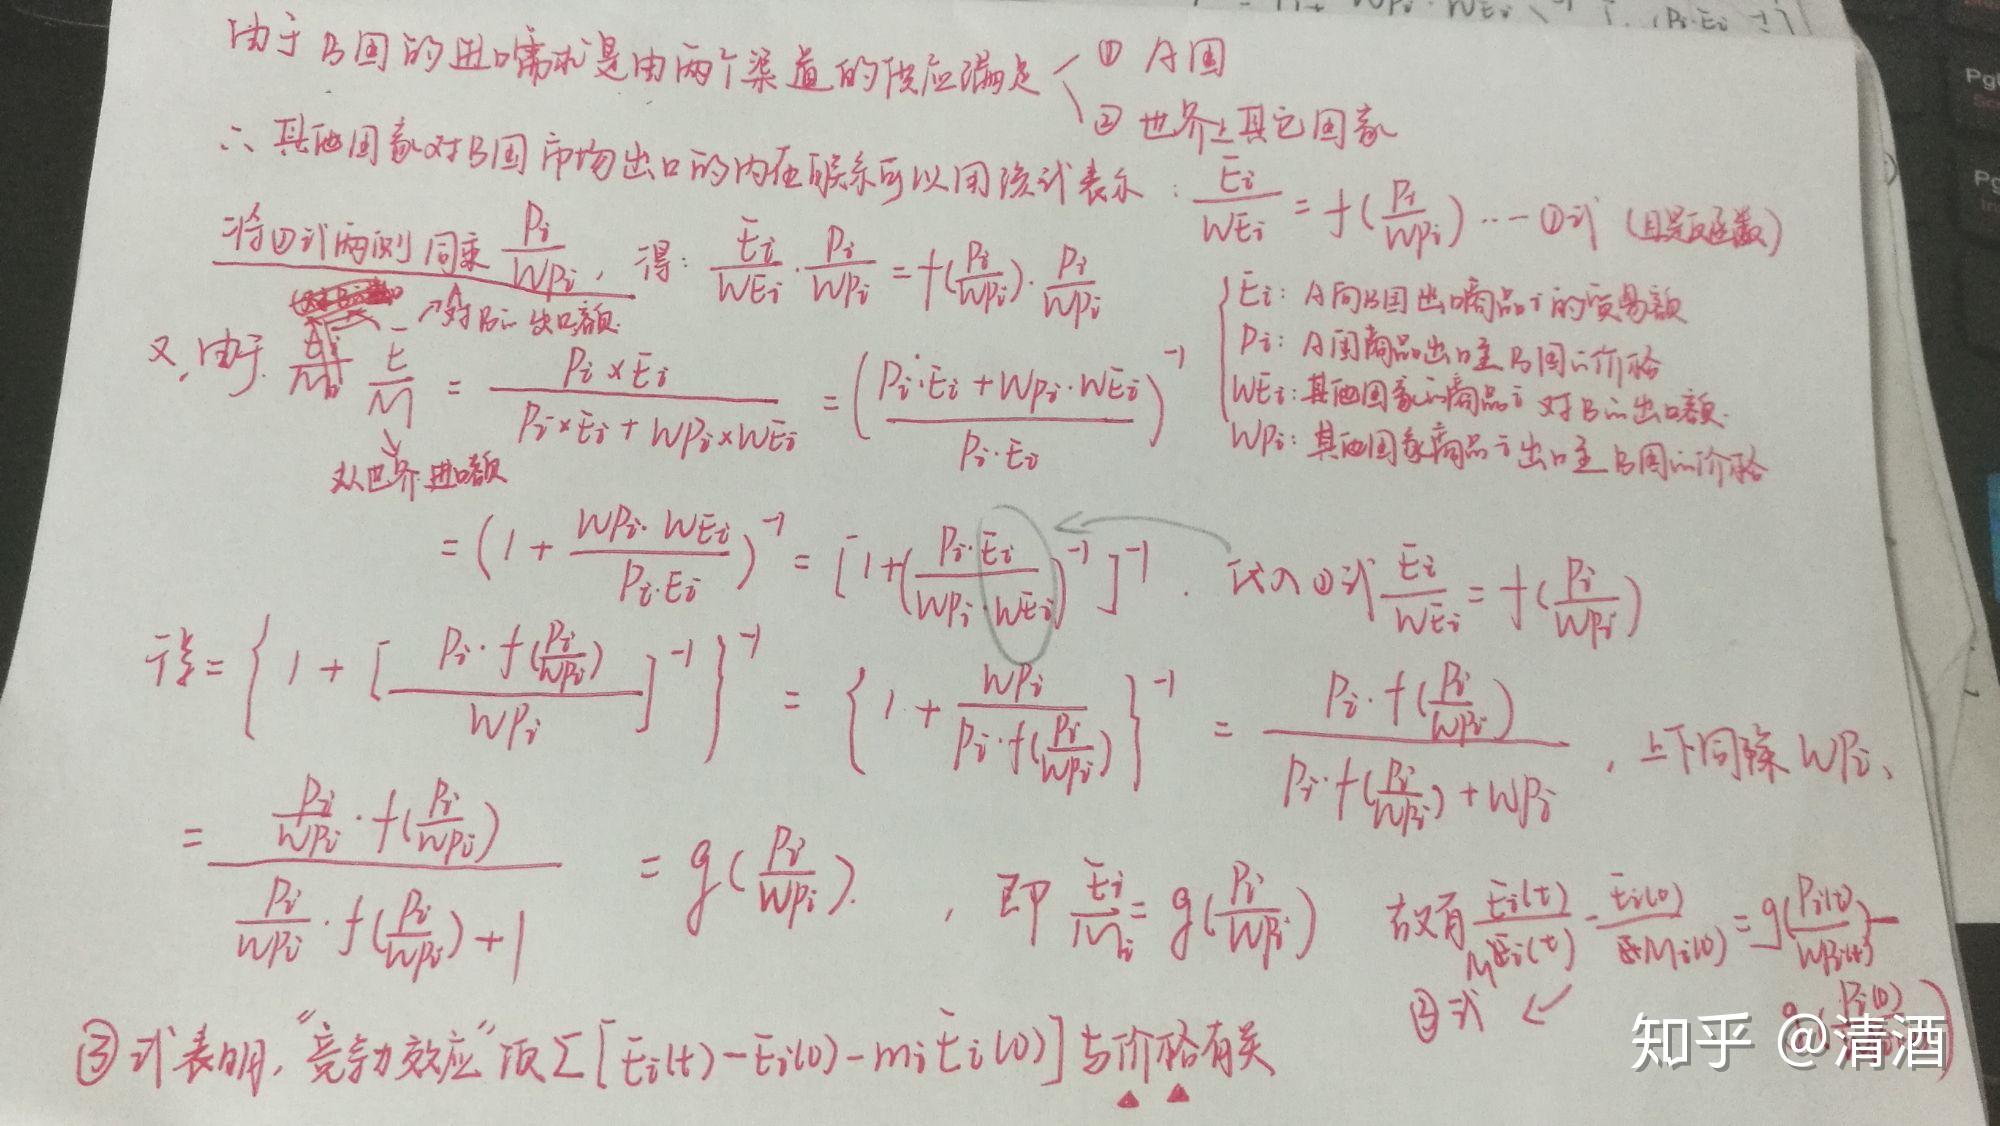 由于B国的进口需求是由两个渠道的供应满足 ① A国
② 世界上其它国家
∴ 其他国家对B国市场出口的内在联系可以用该式表示: Ei/WEi = f(Pi/WPi) ...①式 (且是反函数)
将①式两侧同乘 Pi/WPi, 得: Ei/WEi · Pi/WPi = f(Pi/WPi) · Pi/WPi
→对B的出口额
Ei: A向B国出口商品i的贸易额
Pi: A国商品出口至B国的价格
WEi: 其他国家的商品i对B的出口额
WPi: 其他国家商品i出口至B国的价格
又,由于 E/M = Pi×Ei / (Pi×Ei + WPi×WEi) = ((Pi·Ei + WPi·WEi) / (Pi·Ei))^-1
从世界进口额
= (1 + (WPi·WEi)/(Pi·Ei))^-1 = [1+((Pi·Ei)/(WPi·WEi))^-1]^-1. 代入①式 Ei/WEi = f(Pi/WPi)
得 = {1 + [Pi·f(Pi/WPi) / WPi]^-1}^-1 = {1 + WPi / (Pi·f(Pi/WPi))}^-1 = Pi·f(Pi/WPi) / (Pi·f(Pi/WPi) + WPi), 上下同除WPi、
= (Pi/WPi · f(Pi/WPi)) / (Pi/WPi · f(Pi/WPi) + 1) = g(Pi/WPi). , 即 Ei/Mi = g(Pi/WPi) 故又有 Ei(t)/Mi(t) - Ei(0)/Mi(0) = g(Pi(t)/WPi(t)) -
g(Pi(0)
③式 ↙
③式表明,“竞争力效应”项 Σ[Ei(t) - Ei(0) - miEi(0)] 与价格有关
知乎 @清酒